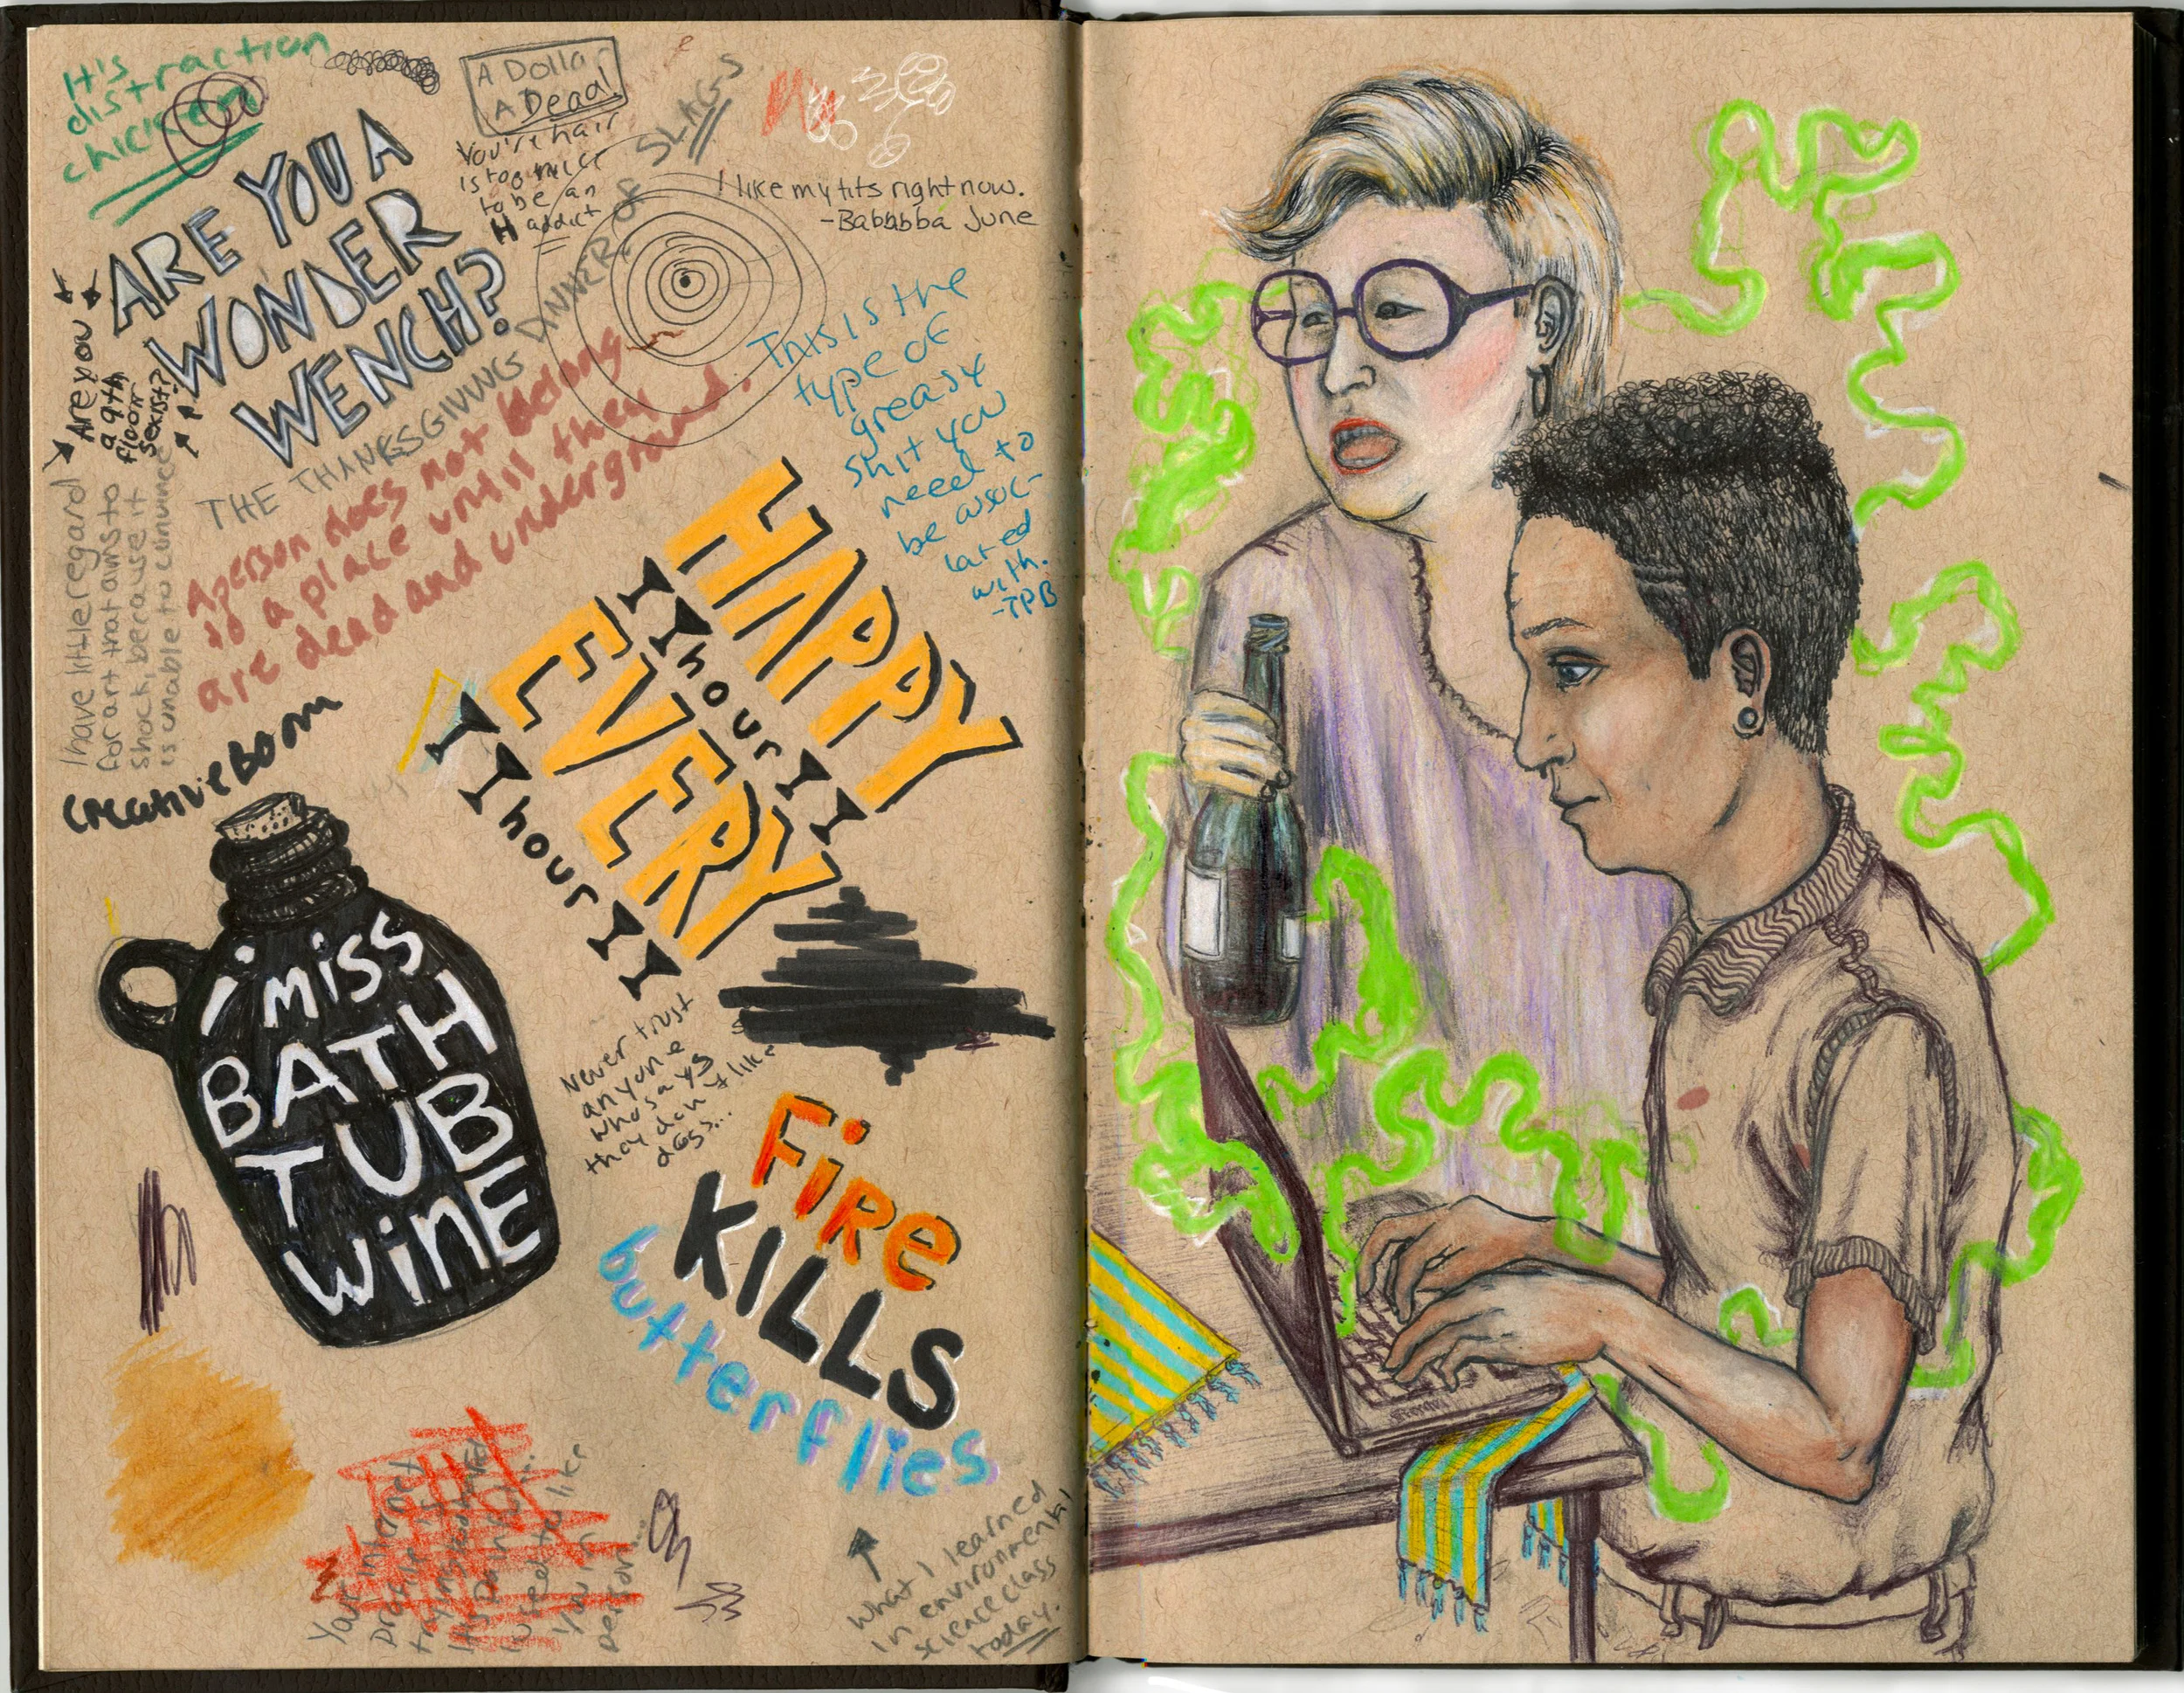 It's
distraction
chicken
A Dolla
A Dead!
You're hair
is too nice
to be an
H addict
I like my tits right now.
-Babbbba June
ARE YOU A
WONDER
WENCH?
Are you
a 9th
floor
sexist?
THE THANKSGIVING DINNER OF SLAGS
A person does not belong
to a place until they
are dead and underground.
This is the
type of
greasy
shit you
need to
be assoc-
iated
with.
-TPB
I have little regard
for art that aims to
shock, because it
is unable to convince
Creative Bom
HAPPY
hour
EVERY
hour
i miss
BATH
TUB
WiNE
Never trust
anyone
who says
they don't like
dogs...
FiRe
KILLS
butterflies
What I learned
in environmental
science class
today.
Your internet
you in
person...